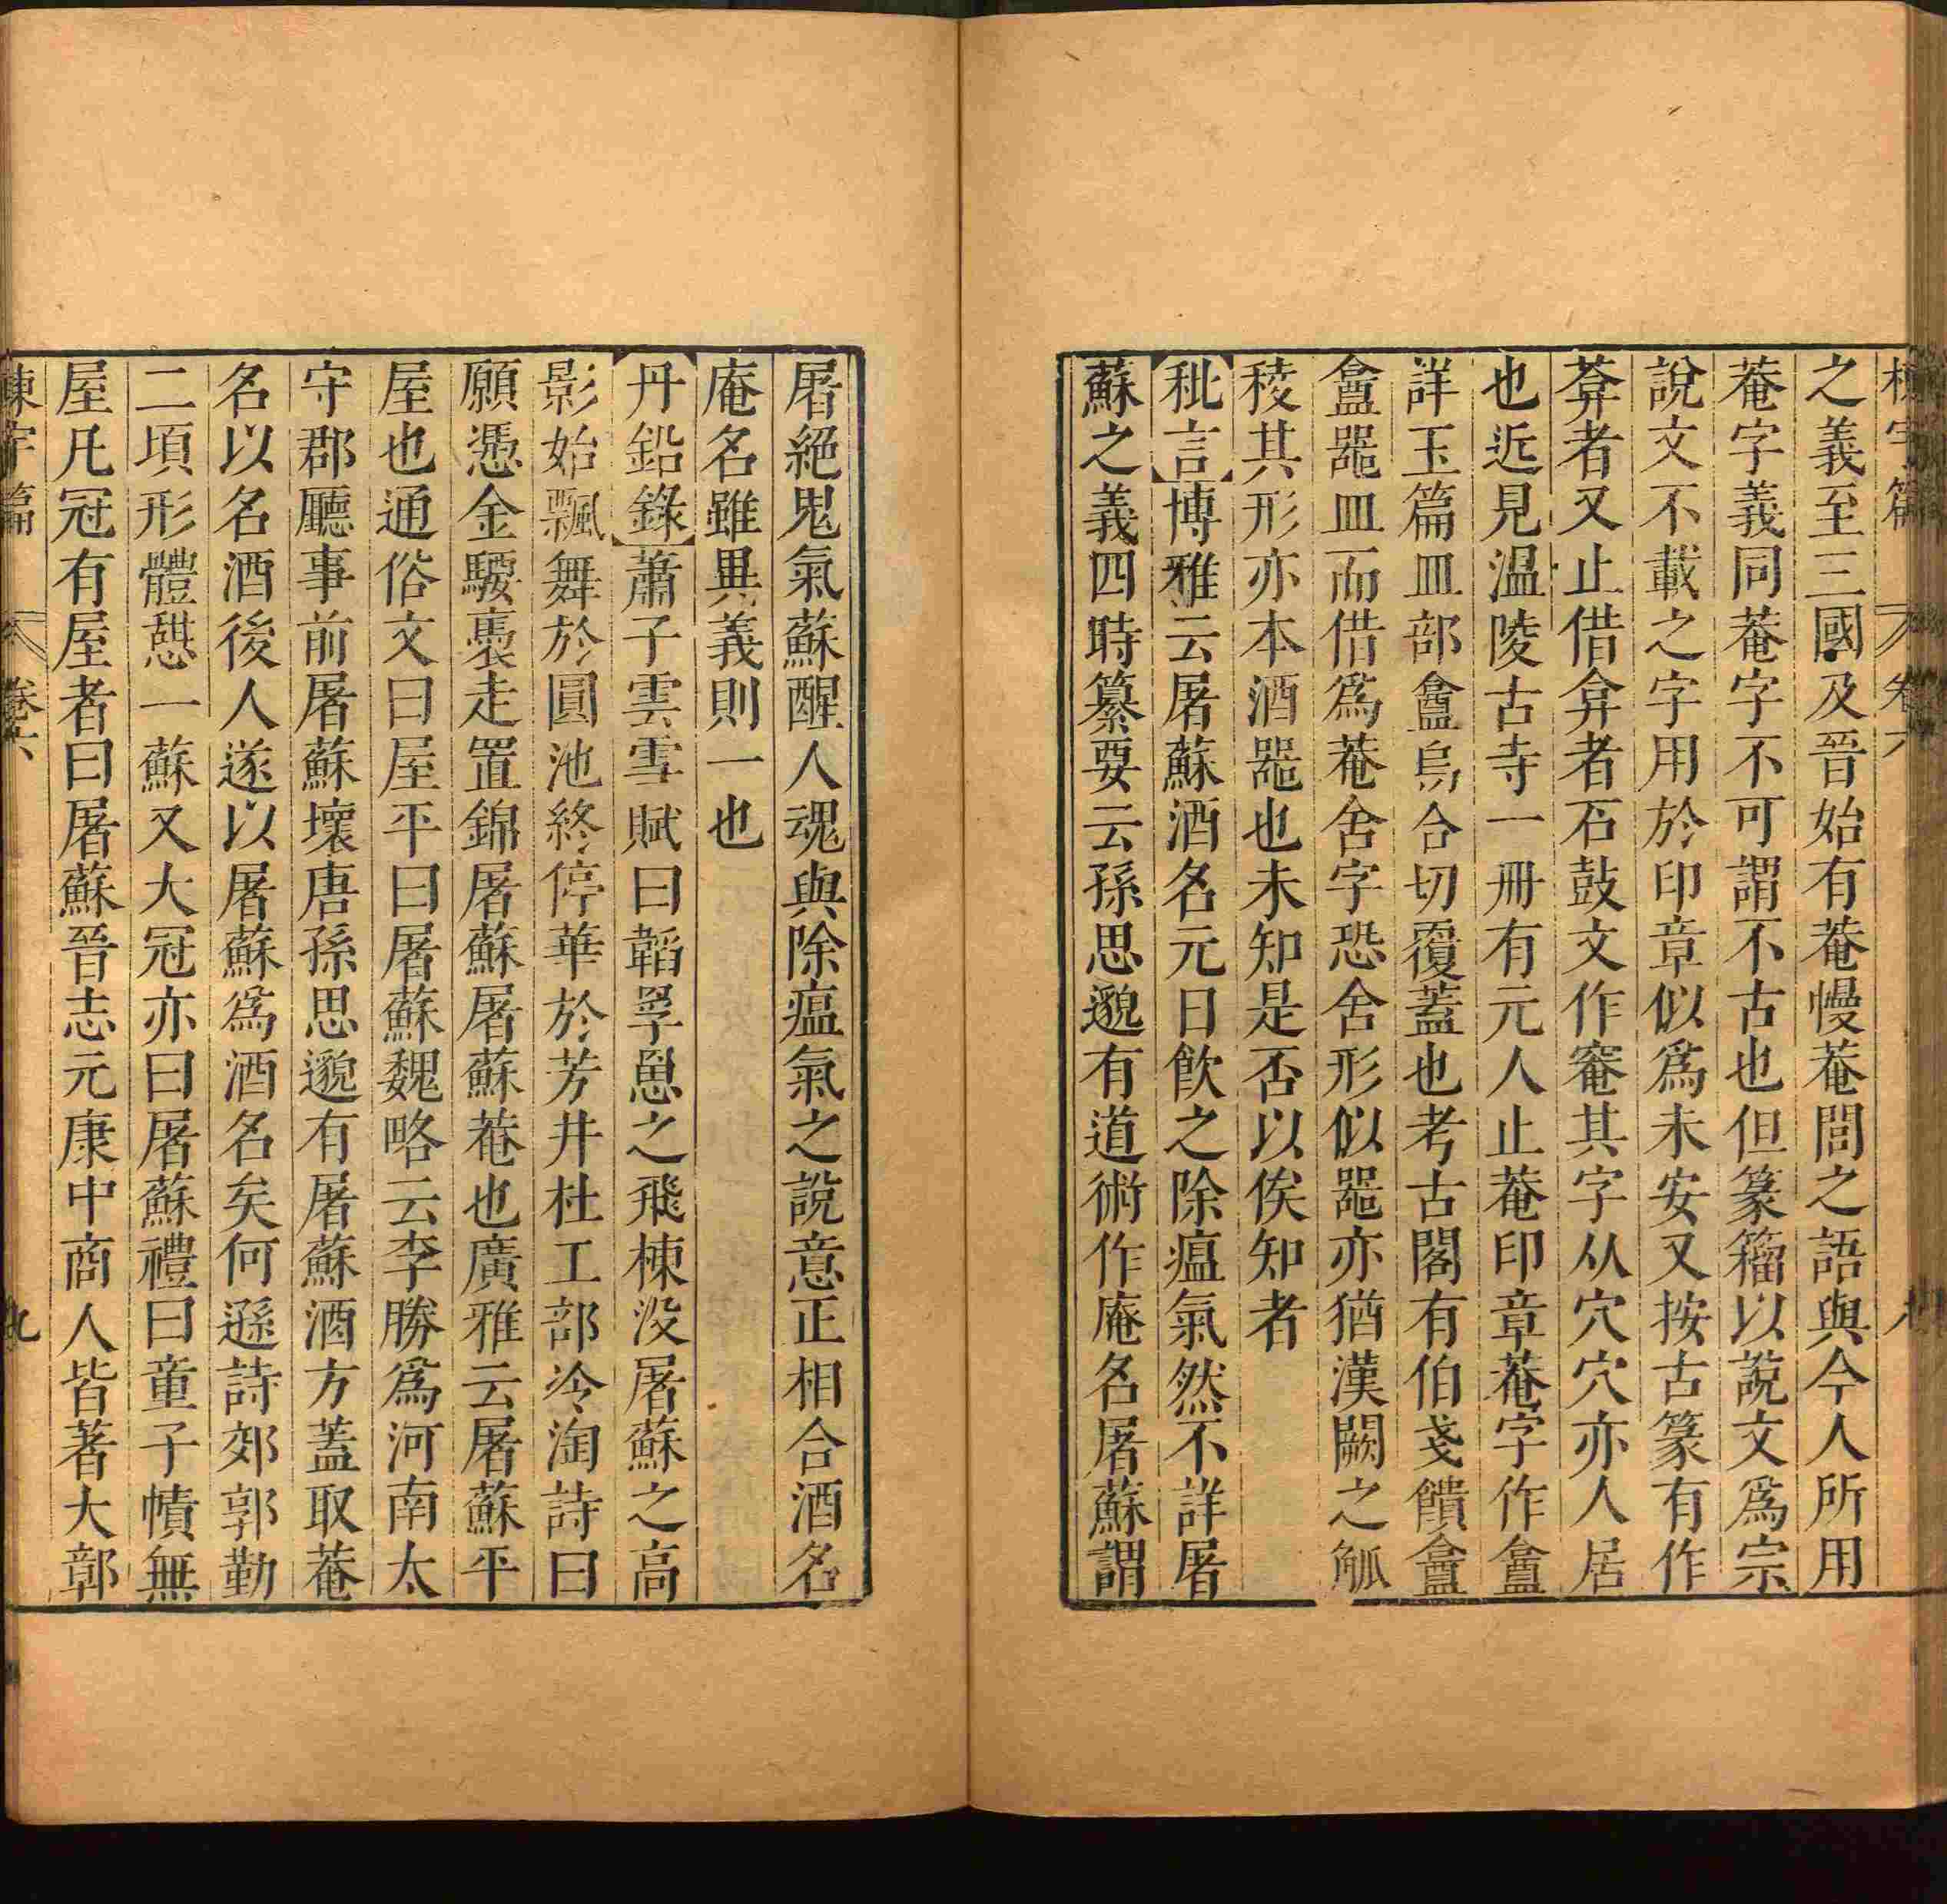 之義至三國及晉始有菴幔菴閭之語與今人所用
菴字義同菴字不可謂不古也但篆籀以說文爲宗
說文不載之字用於印章似爲未安又按古篆有作
葊者又止借弇者石鼓文作窞其字从穴穴亦人居
也近見温陵古寺一冊有元人止菴印章菴字作盦
詳玉篇皿部盦烏合切覆蓋也考古閣有伯戔饋盦
盦噐皿而借爲菴舍字恐舍形似噐亦猶漢闕之觚
稜其形亦本酒噐也未知是否以俟知者
秕言博雅云屠蘇酒名元日飲之除瘟氣然不詳屠
蘇之義四時纂要云孫思邈有道術作庵名屠蘇謂
屠絕鬼氣蘇醒人魂與除瘟氣之說意正相合酒名
庵名雖異義則一也
丹鉛錄蕭子雲雪賦曰韜罦罳之飛棟没屠蘇之高
影始飄舞於圓池終停華於芳井杜工部冷淘詩曰
願憑金騕褭走置錦屠蘇屠蘇菴也廣雅云屠蘇平
屋也通俗文曰屋平曰屠蘇魏略云李勝爲河南太
守郡廳事前屠蘇壞唐孫思邈有屠蘇酒方蓋取菴
名以名酒後人遂以屠蘇爲酒名矣何遜詩郊郭勤
二頃形體憇一蘇又大冠亦曰屠蘇禮曰童子幘無
屋凡冠有屋者曰屠蘇晉志元康中商人皆著大鄣
卷六
九